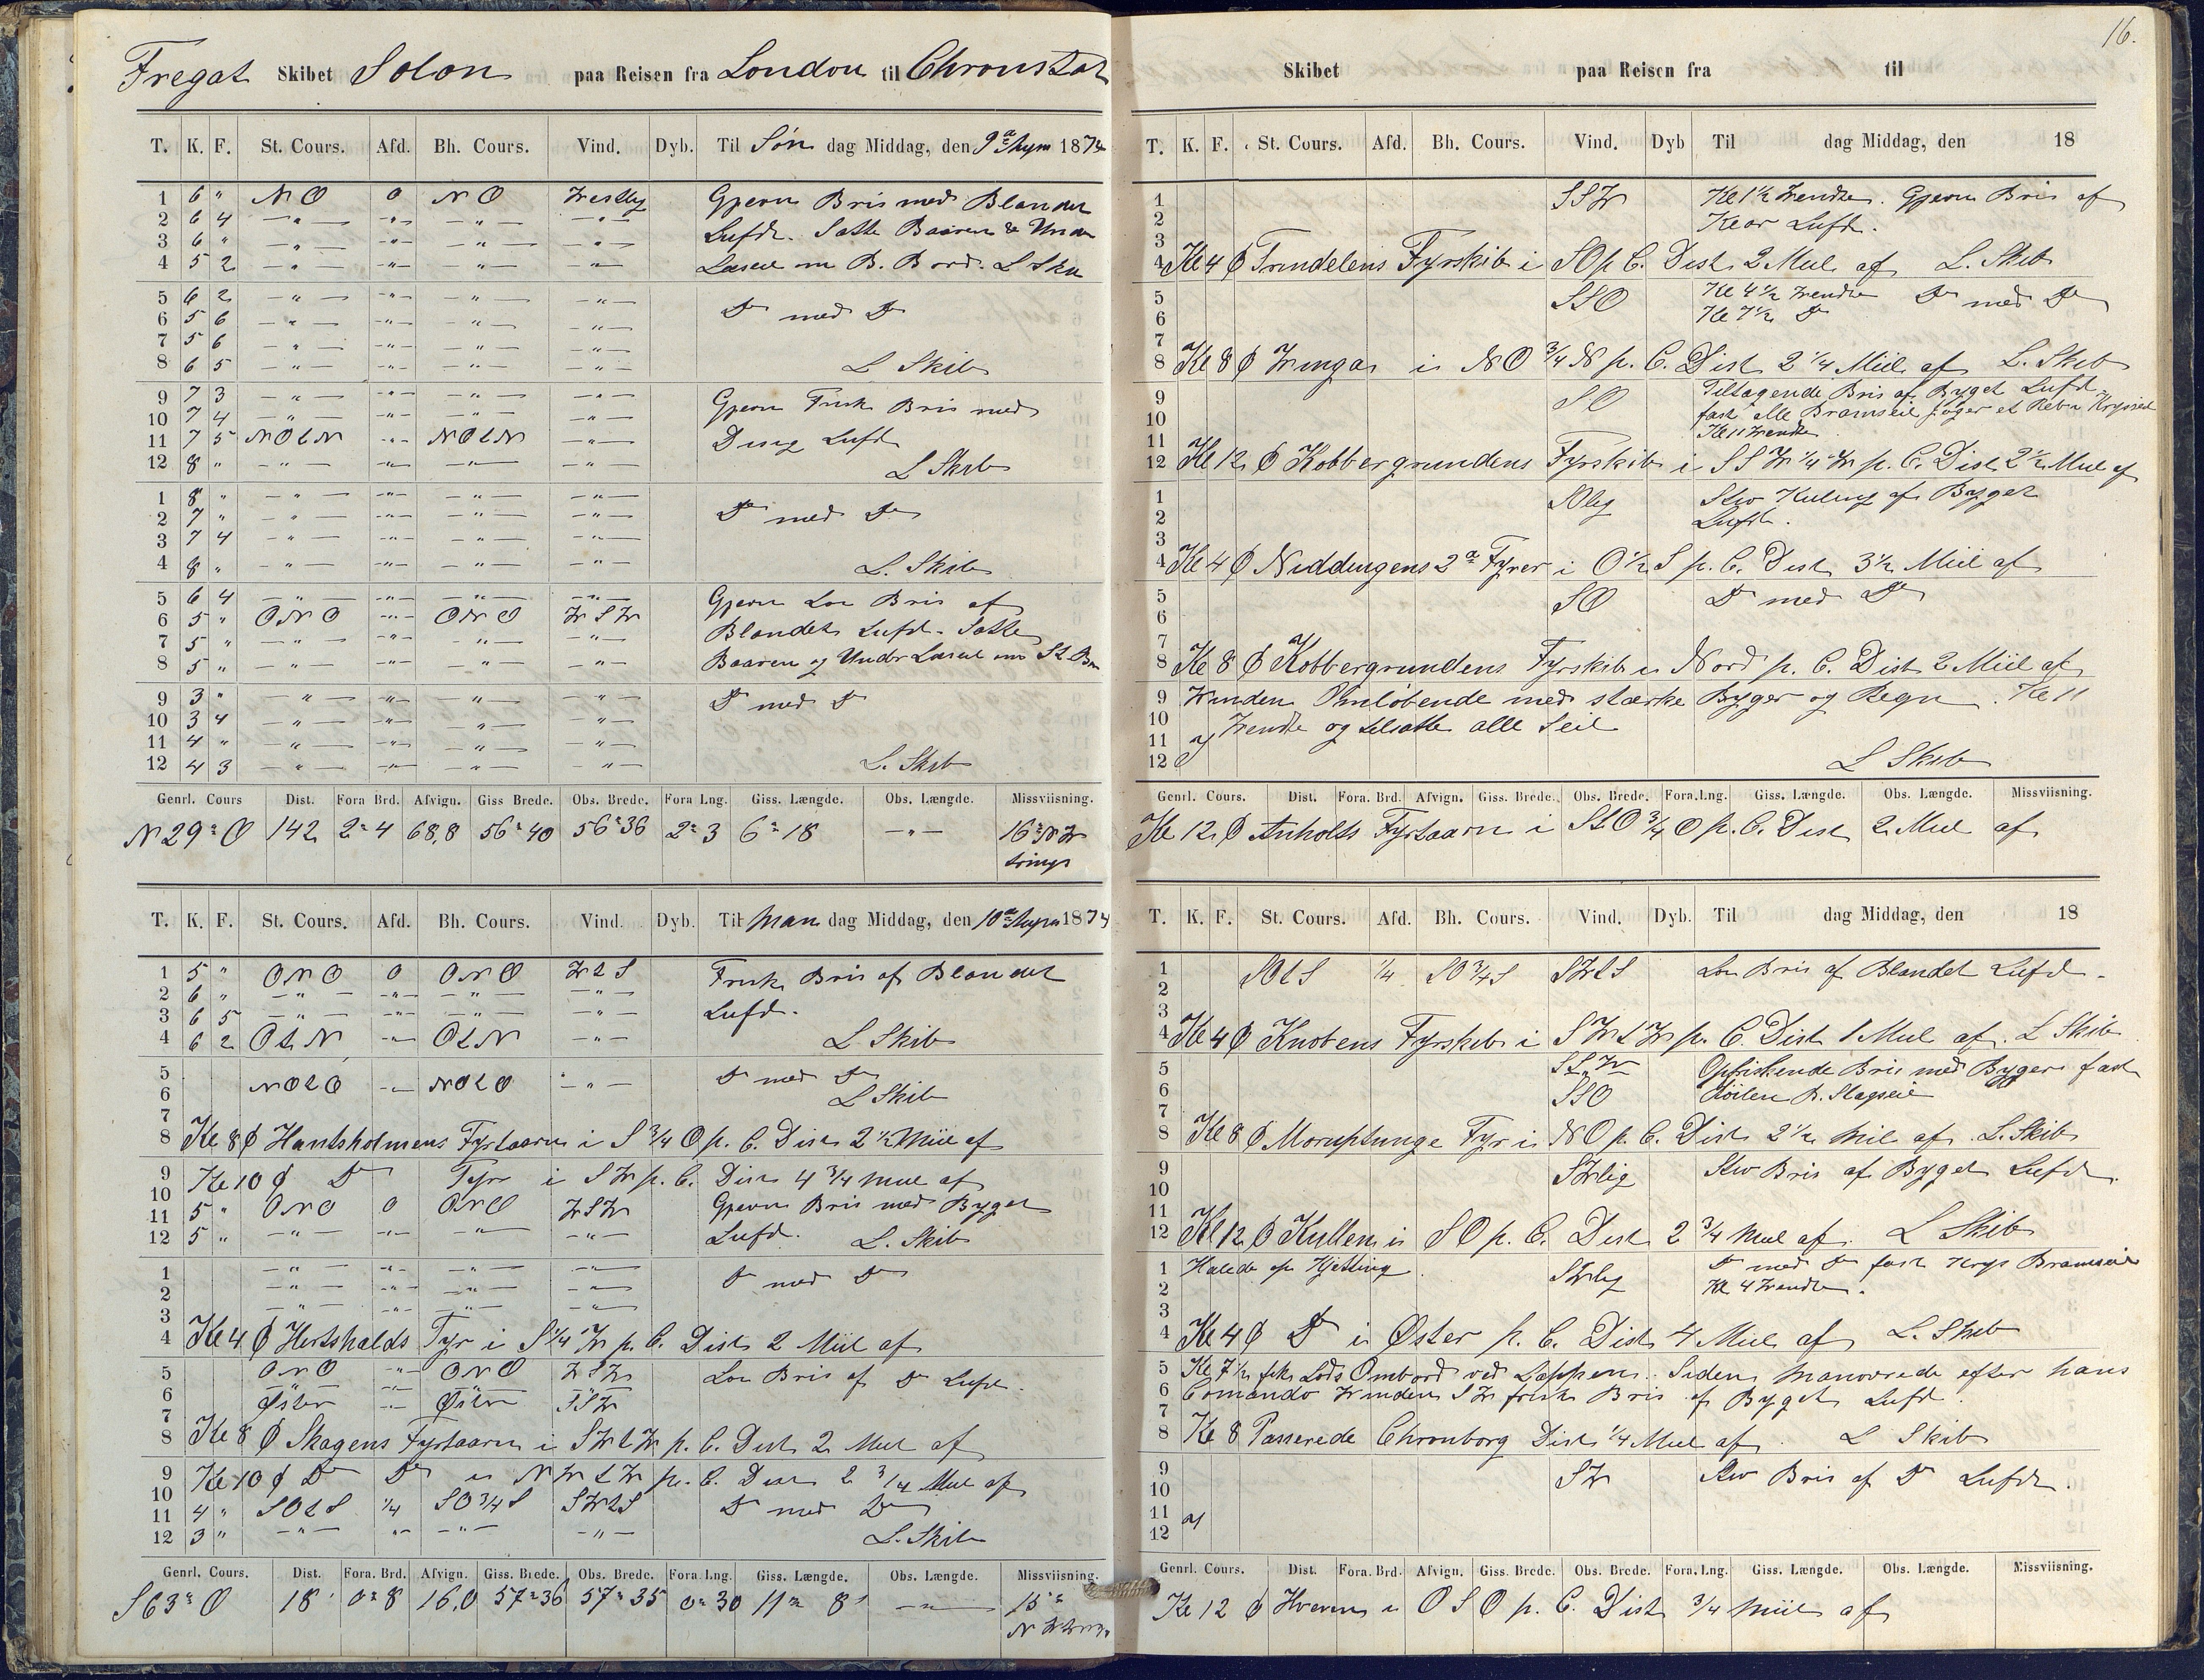 Fregat Skibet Solon paa Reisen fra London til Chronstat
T. K. F. St. Cours. Afd. Bh. Cours. Vind. Dyb. Til Søn dag Middag, den 9de 1874
1 6 " NO 0 NO Westlig Gjevn Bris med Blandet
2 6 4 — " — — " — — " — — " — Lufd. Satte Baaven & Under
3 6 " — " — — " — — " — — " —
4 5 2 — " — — " — — " — — " — Læseil om B. Bord. L Skib
5 6 2 — " — — " — — " — — " — Do med Do
6 5 6 — " — — " — — " — — " —
7 5 6 — " — — " — — " — — " —
8 6 5 — " — — " — — " — — " — L Skib
9 7 3 — " — — " — — " — — " — Gjevn Frisk Bris med
10 7 4 — " — — " — — " — — " —
11 7 5 NOtN — " — NOtN — " — Lufd
12 8 " — " — — " — — " — — " — L Skib
1 8 " — " — — " — — " — — " — Do med Do
2 7 " — " — — " — — " — — " —
3 7 4 — " — — " — — " — — " —
4 8 " — " — — " — — " — — " — L. Skib
5 6 4 — " — — " — — " — — " — Gjevn Lou Bris af
6 5 " ONO — " — ONO WSW Blandet Lufd. Satte
7 5 " — " — — " — — " — — " —
8 5 " — " — — " — — " — — " — Baaven og Under Læseil om St. Bor
9 3 " — " — — " — — " — — " — Do med Do
10 3 4 — " — — " — — " — — " —
11 4 " — " — — " — — " — — " —
12 4 3 — " — — " — — " — — " — L. Skib
Genrl. Cours Dist. Fora Brd. Afvign. Giss Brede. Obs. Brede. Fora Lng. Giss. Længde. Obs. Længde. Missviisning.
N 29° O 142 2° 4 68,8 56° 40 56° 36 2° 3 6° 18 — " — 16° NW
T. K. F. St. Cours. Afd. Bh. Cours. Vind. Dyb. Til Man dag Middag, den 10de 1874
1 5 " ONO 0 ONO WtS Frisk Bris af Blandet
2 6 " — " — — " — — " — — " —
3 6 5 — " — — " — — " — — " — Lufd.
4 6 2 OtN — " — OtN — " — L Skib
5
6 NOtO — " — NOtO — " — Do med Do L Skib
7
8 Kl 8 ϕ Hantsholmens Fyrtaarn i S 3/4 O p. C. Dist 2 1/2 Miil af
9 Kl 10 ϕ Do Fyr i SW p. C. Dist 4 3/4 Miil af
10
11 5 " ONO 0 ONO WSW Gjevn Bris med Byget
12 5 " — " — — " — — " — — " — Lufd. L. Skib
1 — " — — " — — " — — " — Do med Do
2 — " — — " — — " — — " —
3 — " — — " — — " — — " —
4 Kl 4 ϕ Hertshalds Fyr i S 1/4 W p. C. Dist 2 Miil af
5 ONO — " — ONO WSW Lou Bris af Do Lufd.
6 Øster — " — Øster SSW
7
8 Kl 8 ϕ Skagens Fyrtaarn i SWtW p. C. Dist 2 Miil af
9 Kl 10 ϕ Do Do i NWtW p. C. Dist 2 3/4 Miil af
10
11 4 " SOtS 1/4 SO 3/4 S SWtS Do med Do
12 3 " — " — — " — — " — — " — L. Skib
Genrl. Cours. Dist. Fora. Brd. Afvign. Giss. Brede. Obs. Brede. Fora Lng. Giss. Længde. Obs. Længde. Missviisning.
S 63° O 18' 0° 8 16,0 57° 36 57° 35 0° 30 11° 8' — " — 15°
16.
Skibet paa Reisen fra til
T. K. F. St. Cours. Afd. Bh. Cours. Vind. Dyb Til dag Middag, den 18
1 SSW Kl 1 1/2 Wendte. Gjevn Bris af
2 Klar Lufd.
3
4 Kl 4 ϕ Trindelens Fyrskib i SO p. C. Dist 2 Miil af L. Skib
5 SSO Kl 4 1/2 Wendte Do med Do
6 Kl 7 1/2 Do
7
8 Kl 8 ϕ Winga i NO 3/4 N p. C. Dist 2 1/4 Miil af L. Skib
9 SO Tiltagende Bris af Byget Lufd.
10 fast alle Bramseil et Reb i Krysseil
11 Kl 11 Wendte
12 Kl 12 ϕ Kobbergrundens Fyrskib i SSW 1/4 W p. C. Dist 2 1/2 Miil af
1 SOlig Stiv Kuling af Byget
2 Lufd.
3
4 Kl 4 ϕ Niddingens 2de Fyrer i O 1/2 S p. C. Dist 3 1/2 Miil af
5 SO Do med Do
6
7
8 Kl 8 ϕ Kobbergrundens Fyrskib i Nord p. C. Dist 2 Miil af
9 Winden Omløbende med stærke Byger og Regn. Kl 11
10 Wendte og tilsatte alle Seil
11
12 L Skib
Genrl. Cours. Dist. Fora. Brd. Afvign. Giss. Brede. Obs. Brede. Fora. Lng. Giss. Længde. Obs. Længde. Missviisning.
Kl 12 ϕ Anholts Fyrtaarn i StO 3/4 O p. C. Dist 2 Miil af
T. K. F. St. Cours. Afd. Bh. Cours. Vind. Dyb. Til dag Middag, den 18
1 SOtS 1/4 SO 3/4 S SWtS Lou Bris af Blandet Lufd.
2
3
4 Kl 4 ϕ Knobens Fyrskib i SWtW p. C. Dist 1 Miil af. L Skib
5 StW Opfriskende Bris med Byger fast
6 SSO Røilen B. Stagseil
7
8 Kl 8 ϕ Moruptunge Fyr i NO p. C. Dist 2 1/2 Mil af L. Skib
9 SWlig Stiv Bris af Byget Lufd.
10
11
12 Kl 12 ϕ Kullen i SO p. C. Dist 2 3/4 Miil af. L Skib
1 Halede op Kjetting SWlig Do med Do fast Krys Bramseil
2 Kl 4 Wendte.
3
4 Kl 4 ϕ Do i Øster p. C. Dist 4 Miil af L. Skib
5 Kl 7 1/2 fik Lods Ombord ved Lappen. Siden Manovrede efter hans
6 Comando Winden SW frisk Bris af Byget Lufd.
7
8 Kl 8 Passerede Chronborg Dist 1/4 Miil af. L Skib
9 SW Stiv Bris af Do Lufd.
10
11
12
Genrl. Cours. Dist. Fora. Brd. Afvign. Giss. Brede. Obs. Brede. Fora. Lng. Giss. Længde. Obs. Længde. Missviisning.
Kl 12 ϕ Hveen i OSO p. C. Dist 3/4 Miil af